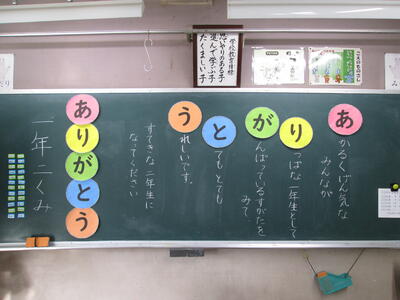 学校教育目標
思いやりのある子
進んで学ぶ子
たくましい子
あかるくげん気な
みんなが
りっぱな一年生として
がんばっているすがたを
みて、
とても とても
うれしいです。
すてきな 二年生に
なってください
ありがとう
一年 二くみ